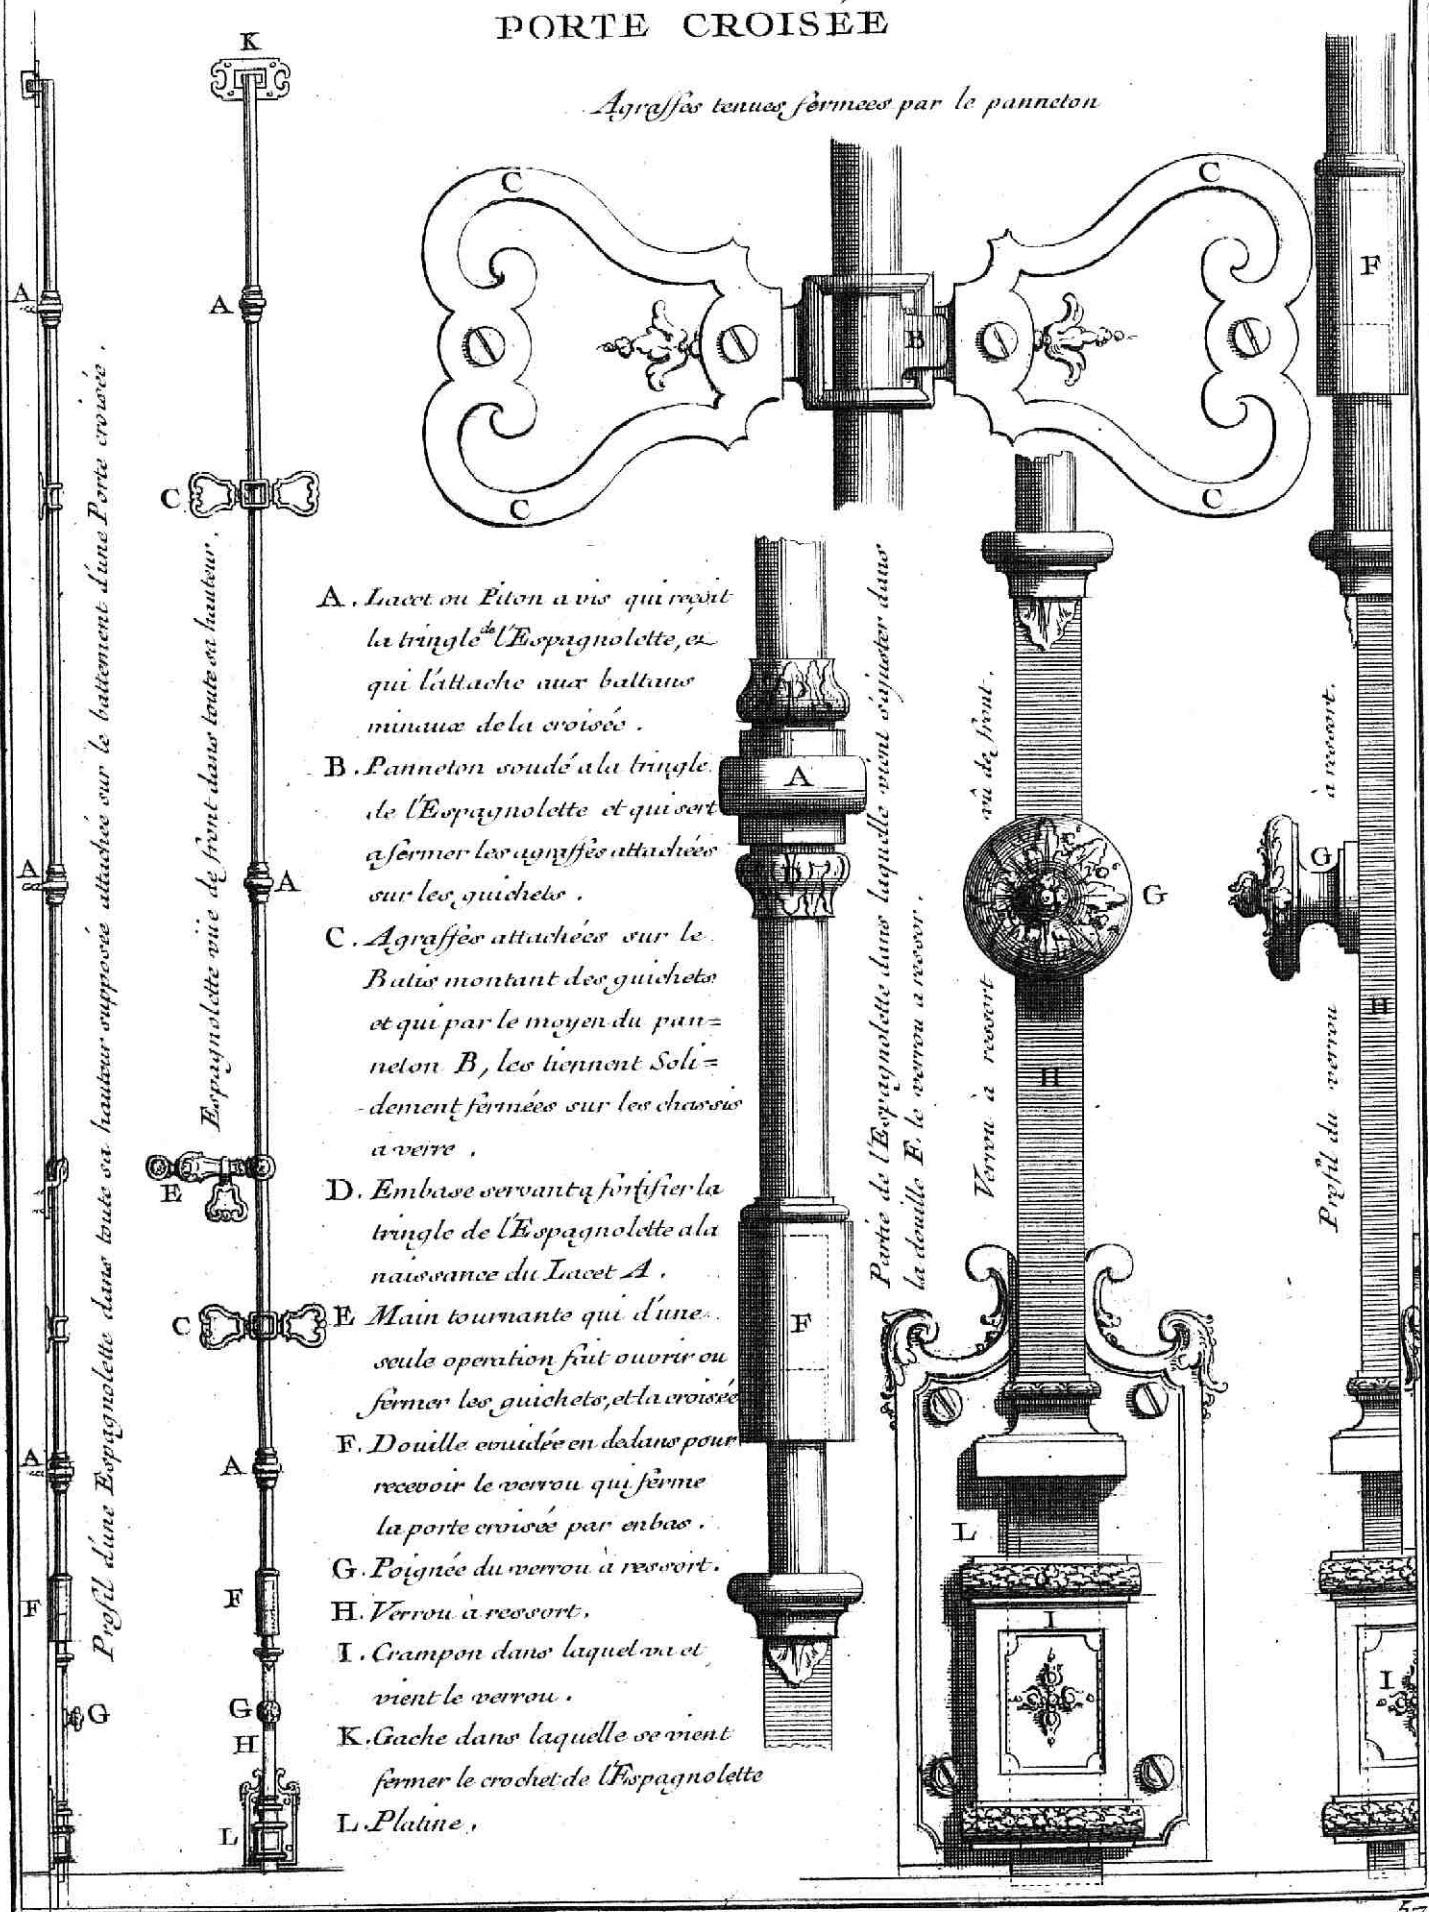 PORTE CROISÉE
Agraffes tenues fermees par le panneton
K
A
A
C
A
A
E
C
A
A
F
F
G
G
H
L
Profil d'une Espagnolette dans toute sa hauteur supposée attachée sur le battement d'une Porte croisée.
Espagnolette vüe de front dans toute sa hauteur.
C
C
B
C
C
A. Lacet ou Piton a vis qui reçoit
la tringle de l'Espagnolette, et
qui l'attache aux battans
minaux de la croisée.
B. Panneton soudé a la tringle
de l'Espagnolette et qui sert
a fermer les agraffes attachées
sur les guichets.
C. Agraffes attachées sur le
Batis montant des guichets
et qui par le moyen du pan=
neton B, les tiennent Soli=
dement fermées sur les chassis
a verre.
D. Embase servant a fortifier la
tringle de l'Espagnolette a la
naissance du Lacet A.
E Main tournante qui d'une
seule operation fait ouvrir ou
fermer les guichets, et la croisée
F. Douille evuidée en dedans pour
recevoir le verrou qui ferme
la porte croisée par enbas.
G. Poignée du verrou à ressort.
H. Verrou à ressort.
I. Crampon dans laquel va et
vient le verrou.
K. Gache dans laquelle se vient
fermer le crochet de l'Espagnolette
L. Platine.
D
A
D
F
Partie de l'Espagnolette dans laquelle vient s'ajuster dans
la douille F. le verrou a ressor.
Verrou à ressort vû de front.
G
H
L
I
F
G
H
I
Profil du verrou à ressort.
57